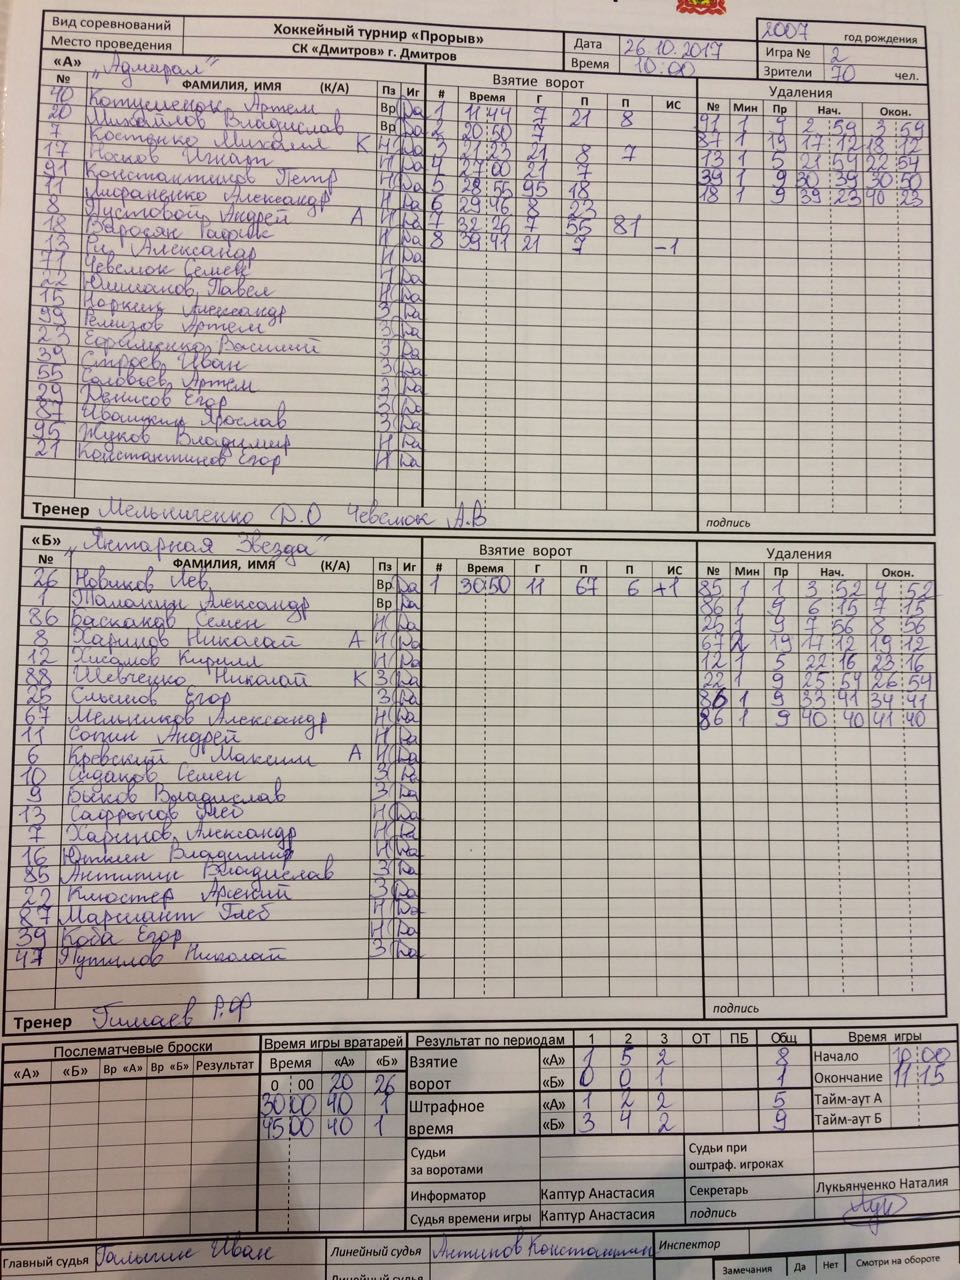 Вид соревнований Хоккейный турнир «Прорыв» 2007 год рождения
Место проведения СК «Дмитров» г. Дмитров Дата 26.10.2017 Игра № 2
Время 10:00 Зрители 70 чел.
«А» "Адмирал" Взятие ворот Удаления
№ ФАМИЛИЯ, ИМЯ (К/А) Пз Иг # Время Г П П ИС № Мин Пр Нач. Окон.
40 Артем Вр Да 1 11 44 7 21 8 91 1 9 2 59 3 59
20 Михайлов Владислав Вр Да 2 20 50 7 87 1 19 17 12 18 12
7 Костенко Михаил К Н Да 3 21 23 21 8 7 13 1 5 21 59 22 54
17 Носков Игнат Н Да 4 27 00 21 7 39 1 9 30 39 30 50
91 Константинов Петр Н Да 5 28 55 95 18 18 1 9 39 23 40 23
11 Александр Н Да 6 29 46 8 23
8 Пустовой Андрей А Н Да 7 32 26 7 55 81
18 Варосян Рафик Н Да 8 39 41 21 7 -1
13 Александр Н Да
71 Чевемок Семен Н Да
22 Павел Н Да
15 Норкин Александр З Да
99 Ремизов Артем З Да
23 Ефрименко Василий З Да
39 Строев Иван З Да
55 Соловьев Артем З Да
29 Денисов Егор З Да
87 Ивашкин Ярослав З Да
95 Жуков Владимир Н Да
21 Константинов Егор Н Да
Тренер Мельниченко Д.О Чевемок А.В подпись
«Б» "Янтарная Звезда" Взятие ворот Удаления
№ ФАМИЛИЯ, ИМЯ (К/А) Пз Иг # Время Г П П ИС № Мин Пр Нач. Окон.
26 Новиков Лев Вр Да 1 30 50 11 67 6 +1 85 1 1 3 52 4 52
1 Александр Вр Да 86 1 9 6 15 7 15
86 Баскаков Семен Н Да 25 1 9 7 56 8 56
8 Харинов Николай А Н Да 67 2 19 17 12 19 12
12 Хисамов Кирилл Н Да 12 1 5 22 16 23 16
88 Шевченко Николай К З Да 22 1 9 25 54 26 54
25 Егор З Да 86 1 9 33 41 34 41
67 Мельников Александр Н Да 86 1 9 40 40 41 40
11 Сопин Андрей Н Да
6 Кревский Максим А Н Да
10 Судаков Семен З Да
9 Быков Владислав З Да
13 Сафронов Глеб Н Да
7 Харинов Александр Н Да
16 Владимир Н Да
85 Антипин Владислав З Да
22 Клюстер Арсений З Да
87 Маршант Глеб Н Да
39 Коба Егор Н Да
47 Путилов Николай З Да
Тренер Гимаев Р.Ф подпись
Послематчевые броски Время игры вратарей Результат по периодам 1 2 3 ОТ ПБ Общ Время игры
«А» «Б» Вр «А» Вр «Б» Результат Время «А» «Б» Взятие «А» 1 5 2 8 Начало 10 00
0 00 20 26 ворот «Б» 0 0 1 1 Окончание 11 15
30 00 40 1 Штрафное «А» 1 2 2 5 Тайм-аут А
45 00 40 1 время «Б» 3 4 2 9 Тайм-аут Б
Судьи за воротами Судьи при оштраф. игроках
Информатор Каптур Анастасия Секретарь Лукьянченко Наталия
Судья времени игры Каптур Анастасия подпись
Главный судья Галыгин Иван Линейный судья Антипов Константин Инспектор
Линейный судья Замечания Да Нет Смотри на обороте